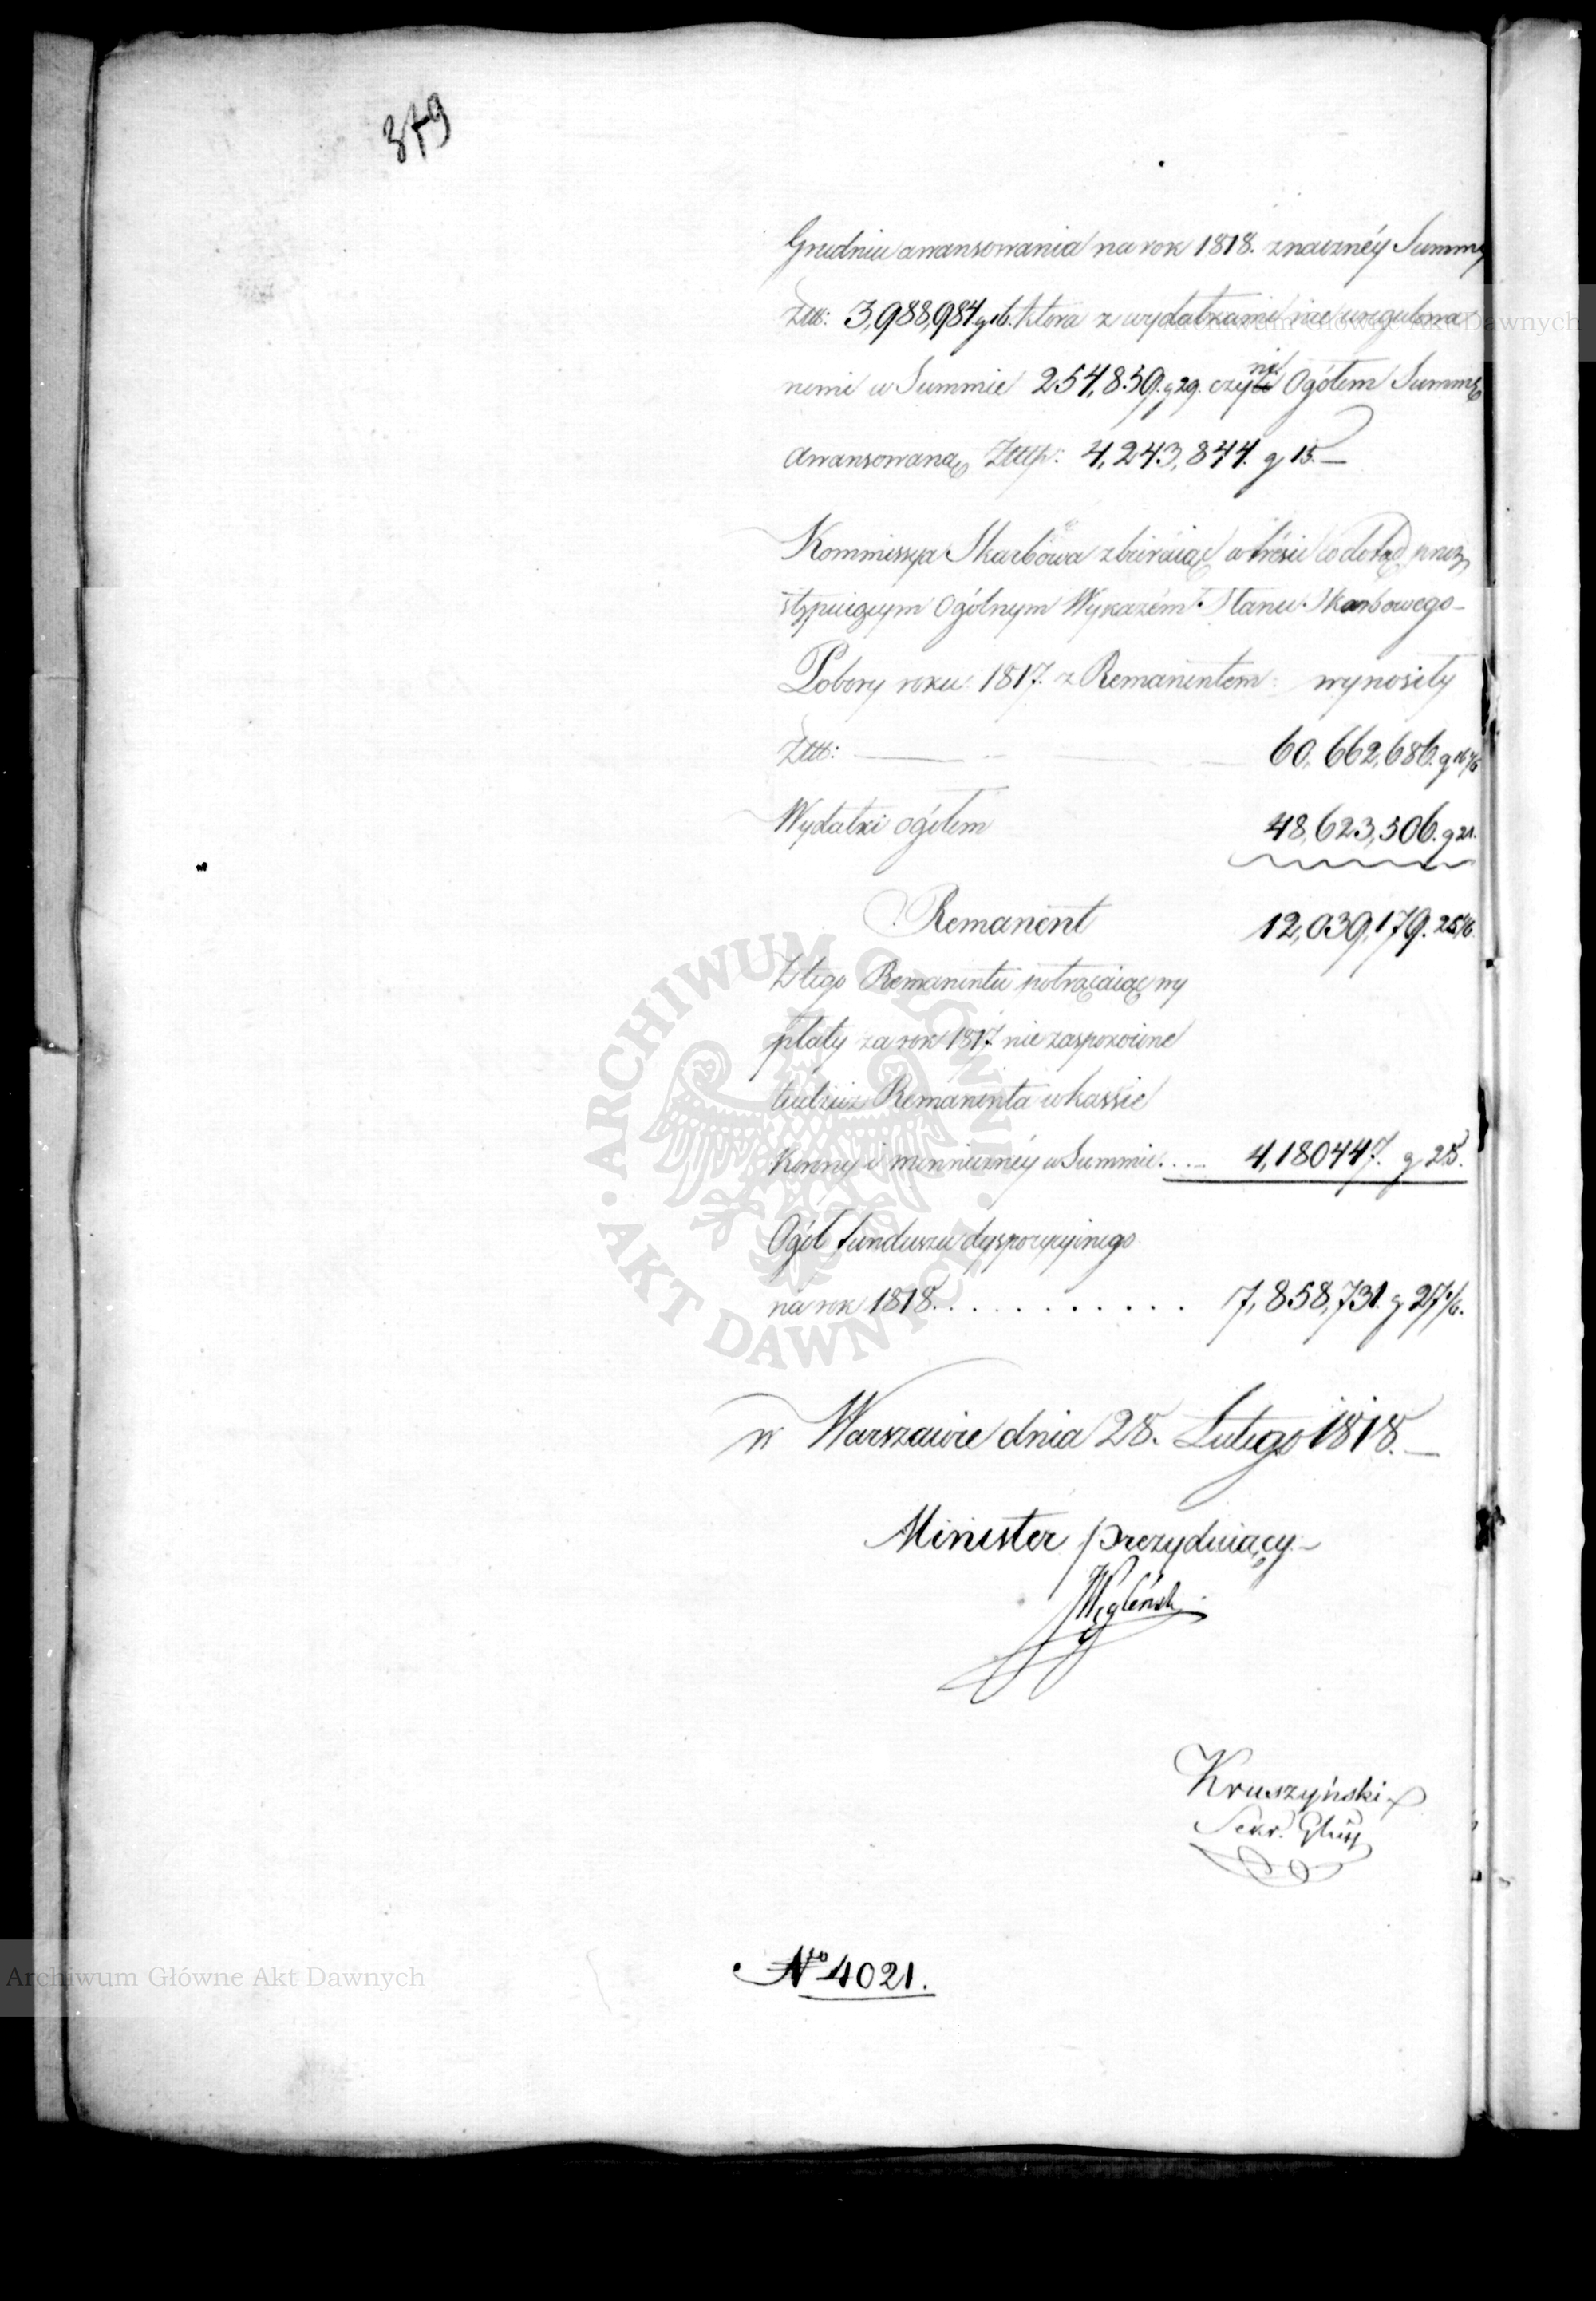 379
Grudniu awansowania na rok 1818. znacznéy Summy
Złtt: 3,988,984 g 16. która z wydatkami nieuregulowa
nemi w Summie 254,859. g 29. czyni Ogółem Summę
awansowaną Złtp: 4,243,844. g 15.—
Kommissya Skarbowa zbieraiąc w tréści co dotąd
Ogólnym Wykazém Stanu Skarbowego—
Pobory roku 1817. z Remanentem wynosiły
Złtt: 60,662,686. g 16 1/6
Wydatki ogółem 48,623,506. g 21.
Remanent 12,039,179. 25 1/6.
Z tego Remanentu potrącaiąc wy
płaty za rok 1817 nie zaspokoione
tudzież Remanenta w kassie
Konny i mennicznéy w Summie.... 4,180447. g 28.
Ogół funduszu dyspozycyinego
na rok 1818............ 7,858,731. g 27 1/6.
w Warszawie dnia 28. Lutego 1818.—
Minister prezyduiący—
Węgleński
Kruszyński
Sekr.
No 4021.
ARCHIWUM GŁÓWNE AKT DAWNYCH
Archiwum Główne Akt Dawnych
Archiwum Główne Akt Dawnych